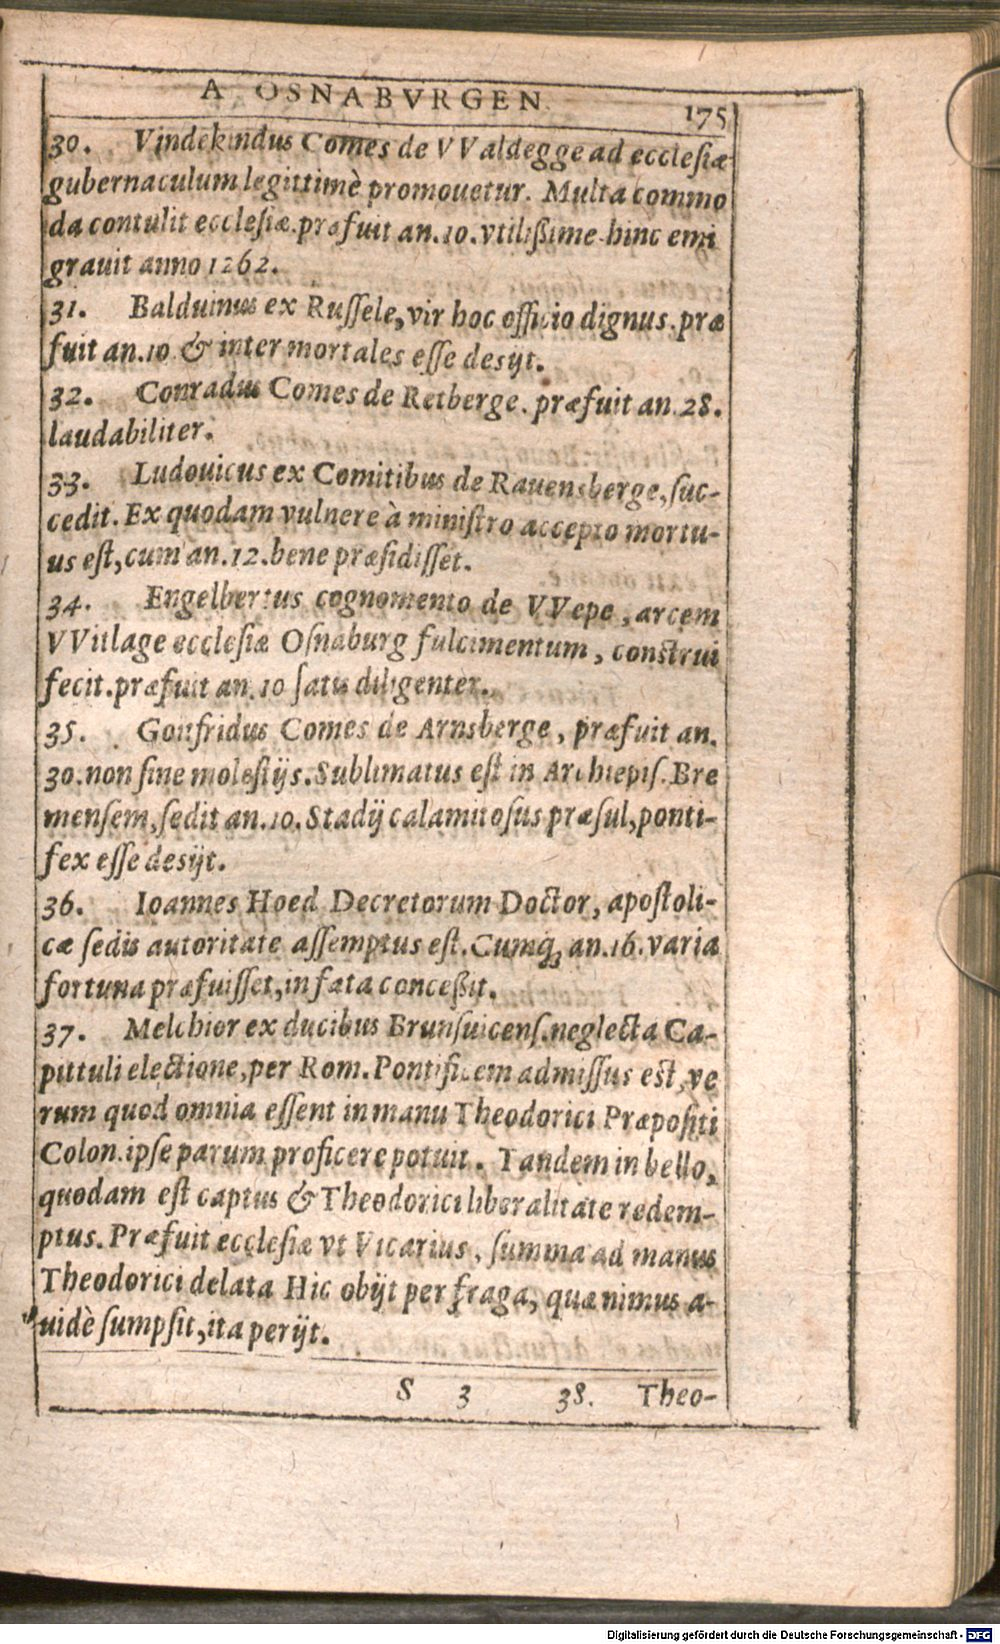 A OSNABVRGEN. 175
30. Vindekindus Comes de VValdegge ad ecclesiæ
gubernaculum legittimè promouetur. Multa commo
da contulit ecclesiæ. præfuit an. 10. vtilißime hinc emi
grauit anno 1262.
31. Balduinus ex Russele, vir hoc officio dignus. præ
fuit an. 10 & inter mortales esse desijt.
32. Conradus Comes de Retberge. præfuit an. 28.
laudabiliter.
33. Ludouicus ex Comitibus de Rauensberge, suc-
cedit. Ex quodam vulnere à ministro accepto mortu-
us est, cum an. 12. bene præsidisset.
34. Engelbertus cognomento de VVepe, arcem
VVitlage ecclesiæ Osnaburg fulcimentum, construi
fecit. præfuit an. 10 satis diligenter.
35. Gonfridus Comes de Arnsberge, præfuit an.
30. non sine molestijs. Sublimatus est in Archiepis. Bre
mensem, sedit an. 10. Stadij calamitosus præsul, ponti-
fex esse desijt.
36. Ioannes Hoed Decretorum Doctor, apostoli-
cæ sedis autoritate assemptus est. Cumq; an. 16. varia
fortuna præfuisset, in fata conceßit.
37. Melchior ex ducibus Brunsuicens. neglecta Ca-
pittuli electione, per Rom. Pontificem admissus est, ve
rum quod omnia essent in manu Theodorici Præpositi
Colon. ipse parum proficere potuit. Tandem in bello,
quodam est captus & Theodorici liberalitate redem-
ptus. Præfuit ecclesiæ vt Vicarius, summa ad manus
Theodorici delata Hic obijt per fraga, quæ nimus a-
uidè sumpsit, ita perijt.
S 3 38. Theo-
Digitalisierung gefördert durch die Deutsche Forschungsgemeinschaft - DFG